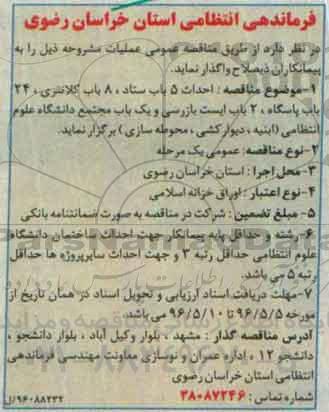 فرماندهی انتظامی استان خراسان رضوی
در نظر دارد از طریق مناقصه عمومی عملیات مشروحه ذیل را به
پیمانکاران ذیصلاح واگذار نماید.
۱-موضوع مناقصه : احداث ۵ باب ستاد ، ۸ باب کلانتری ، ۲۴
باب پاسگاه ، ۲ باب ایست بازرسی و یک باب مجتمع دانشگاه علوم
انتظامی (ابنیه ، دیوارکشی ، محوطه سازی) برگزار نماید.
۲-نوع مناقصه: عمومی یک مرحله
۳-محل اجرا : استان خراسان رضوی
۴-نوع اعتبار : اوراق خزانه اسلامی
۵- مبلغ تضمین : شرکت در مناقصه به صورت ضمانتنامه بانکی
۶-رشته و حداقل پایه پیمانکار جهت احداث ساختمان دانشگاه
علوم انتظامی حداقل رتبه ۳ و جهت احداث سایرپروژه ها حداقل
رتبه ۵ می باشد.
۷-مهلت دریافت اسناد ارزیابی و تحویل اسناد در همان تاریخ از
مورخه ۹۶/۵/۵ تا ۹۶/۵/۱۰ می باشد.
آدرس مناقصه گذار : مشهد ، بلوار وکیل آباد ، بلوار دانشجو ،
دانشجو ۱۲ ، اداره عمران و نوسازی معاونت مهندسی فرماندهی
انتظامی استان خراسان رضوی
شماره تماس : ۳۸۰۸۷۲۴۶
۹۶۰۸۸۲۳۲/ل